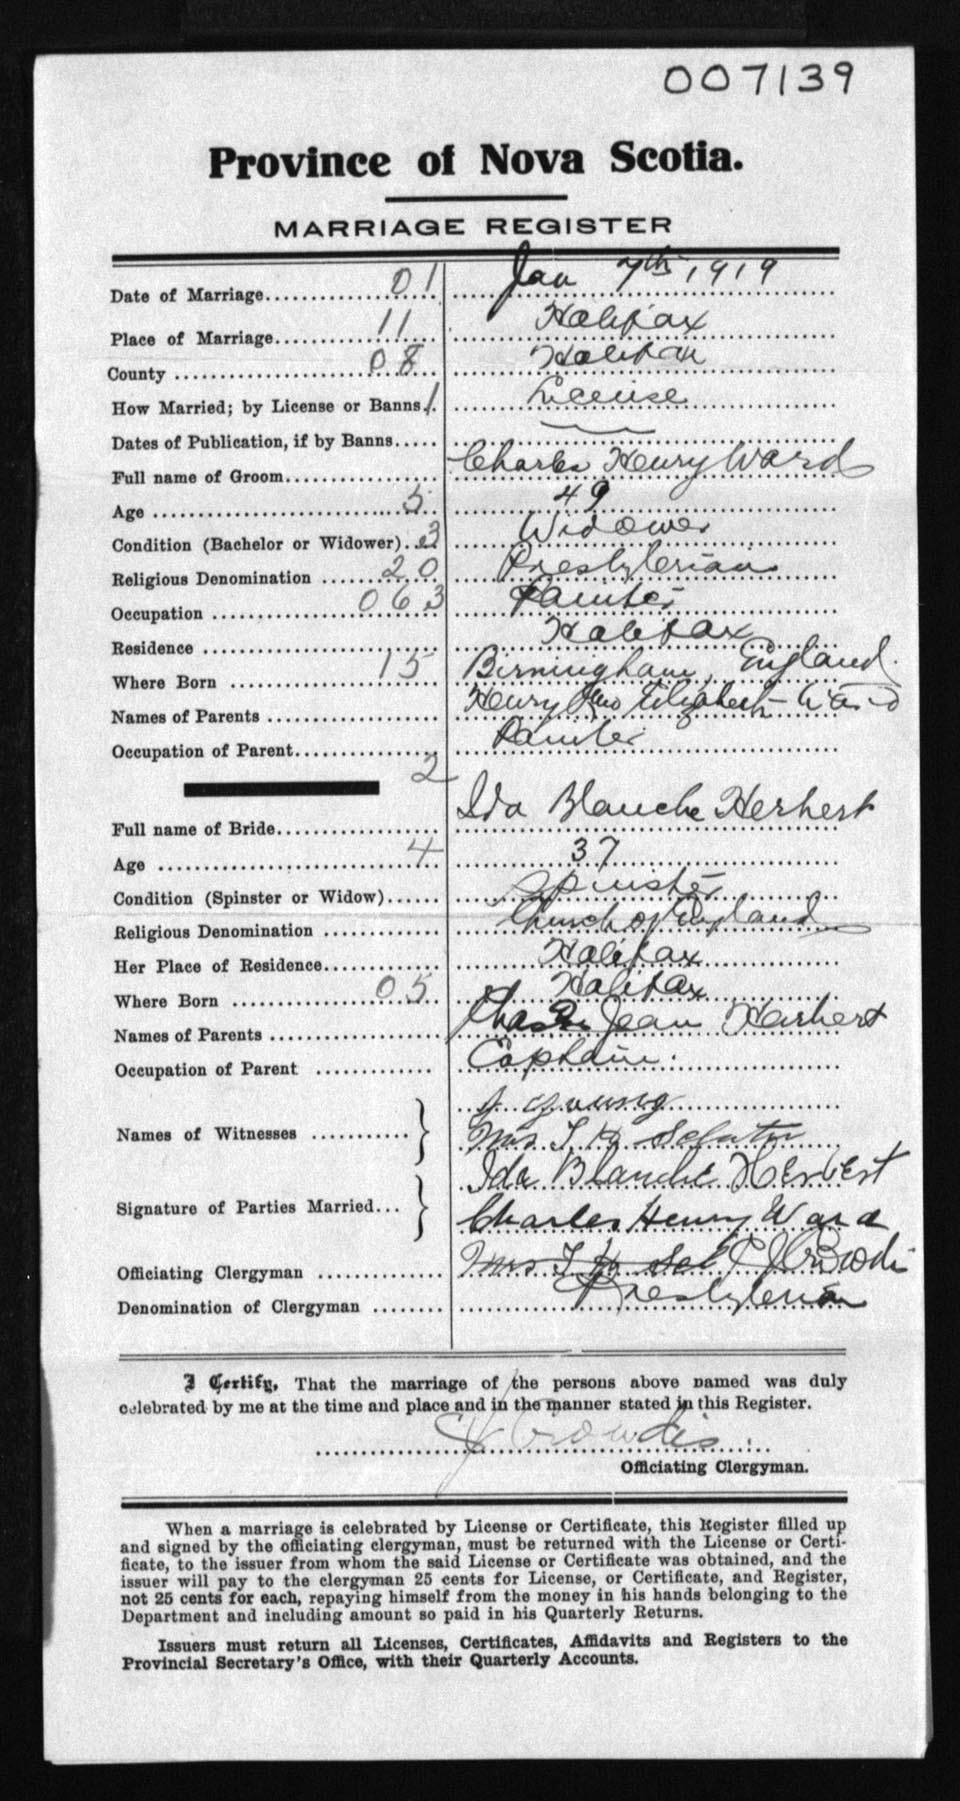 007139
Province of Nova Scotia.
MARRIAGE REGISTER
Date of Marriage 01 Jan 7th, 1919
Place of Marriage 11 Halifax
County 08 Halifax
How Married; by License or Banns 1 License
Dates of Publication, if by Banns
Full name of Groom Charles Henry Ward
Age 5 49
Condition (Bachelor or Widower) 3 Widower
Religious Denomination 20 Presbyterian
Occupation 063 Painter
Residence Halifax
Where Born 15 Birmingham, England
Names of Parents Henry Elizabeth Ward
Occupation of Parent Painter
2
Full name of Bride Ida Blanche Herbert
Age 4 37
Condition (Spinster or Widow) Spinster
Religious Denomination Church of England
Her Place of Residence Halifax
Where Born 05 Halifax
Names of Parents Chas Jean Herbert
Occupation of Parent Captain.
Names of Witnesses J Young
Mrs T H
Signature of Parties Married Ida Blanche Herbert
Charles Henry Ward
Officiating Clergyman Mrs T H Crowdis
Denomination of Clergyman Presbyterian
I Certify, That the marriage of the persons above named was duly
celebrated by me at the time and place and in the manner stated in this Register.
Crowdis
Officiating Clergyman.
When a marriage is celebrated by License or Certificate, this Register filled up
and signed by the officiating clergyman, must be returned with the License or Certi-
ficate, to the issuer from whom the said License or Certificate was obtained, and the
issuer will pay to the clergyman 25 cents for License, or Certificate, and Register,
not 25 cents for each, repaying himself from the money in his hands belonging to the
Department and including amount so paid in his Quarterly Returns.
Issuers must return all Licenses, Certificates, Affidavits and Registers to the
Provincial Secretary's Office, with their Quarterly Accounts.